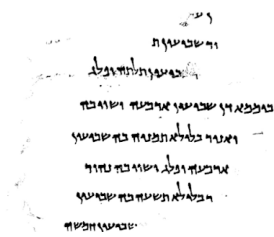 שביעין ת
שביעין תלתה ופלג
ביממא דן שביעין ארבעה ושוי בה
ואניר בלילא תמניה בה שביעין
ארבעה ופלג ושוי בה נהור
בלילא תשעה בה שביעין
שביעין חמשה